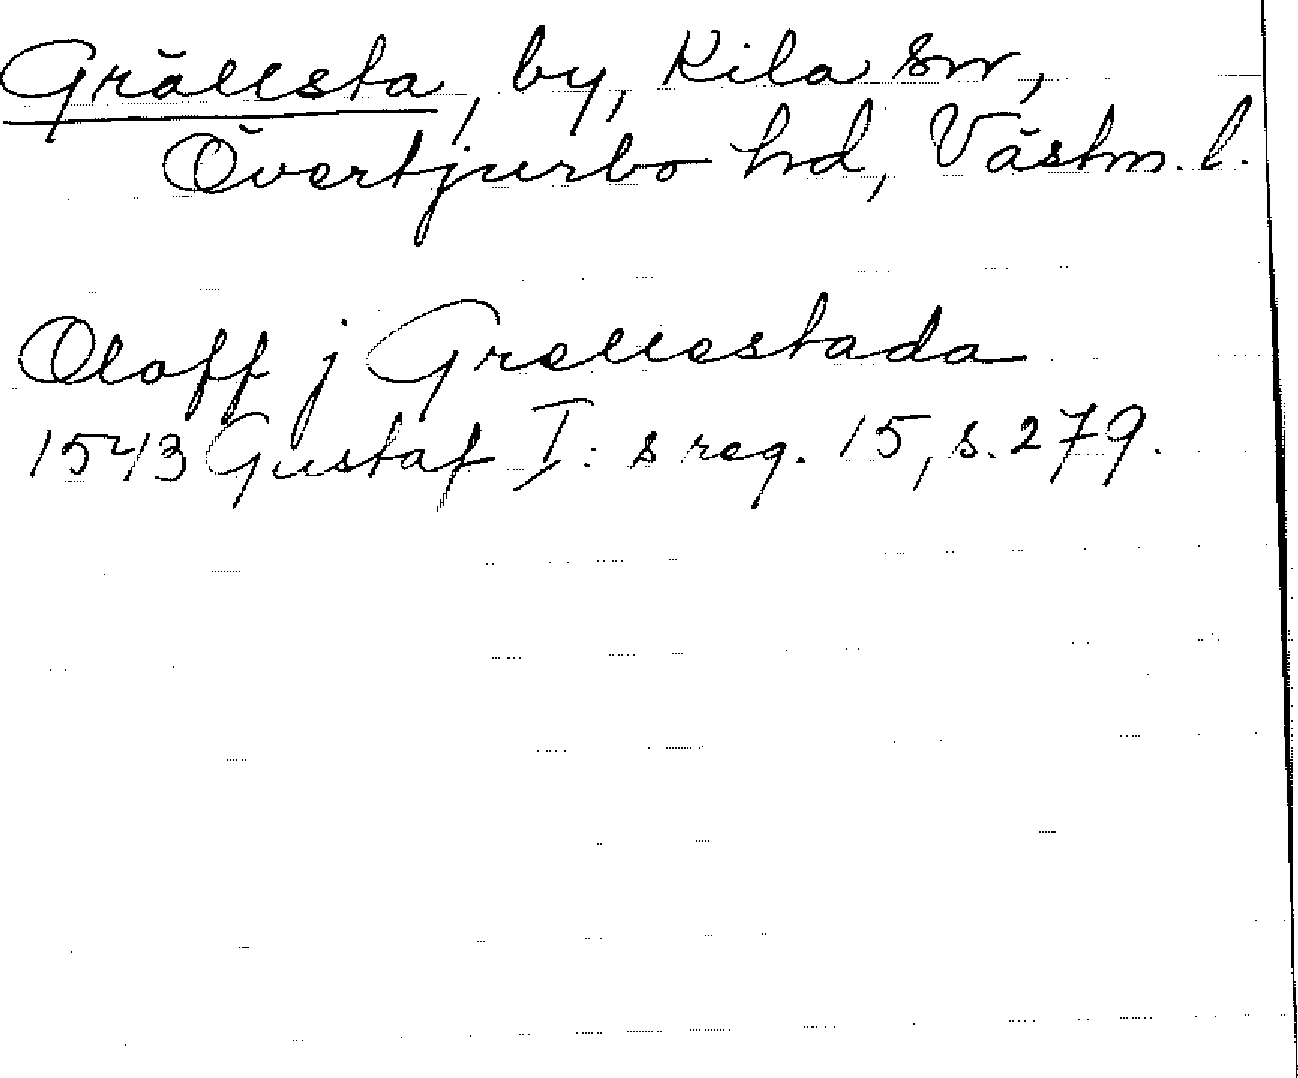 Grällsta, by, Kila sn,
Övertjurbo hd, Västm. l.
Oloff j Grellestada
1543 Gustaf I: s reg. 15, s. 279.